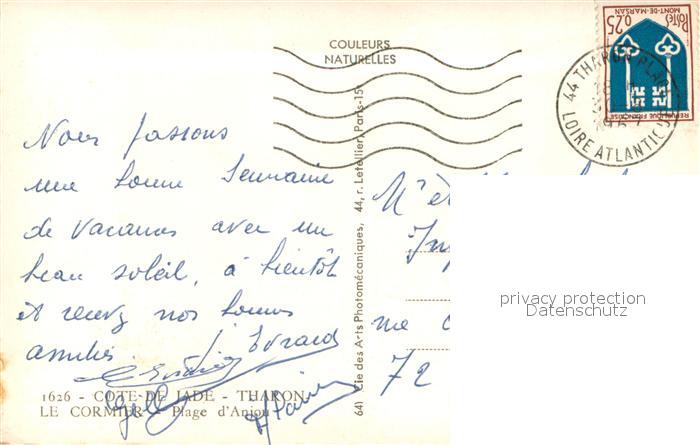 COULEURS
NATURELLES
POSTES
0,25
MONT-DE-MARSAN
REPUBLIQUE FRANÇAISE
44 THARON PLAGE
LOIRE ATLANTIQUE
Nous passons
une bonne semaine
de vacances avec un
beau soleil, à bientôt
et recevez nos bonnes
amitiés.
Evrard
1626 - COTE DE JADE - THARON
LE CORMIER - Plage d'Anjou
64) Cie des Arts Photomécaniques, 44, r. Letellier, Paris-15e
72
privacy protection
Datenschutz